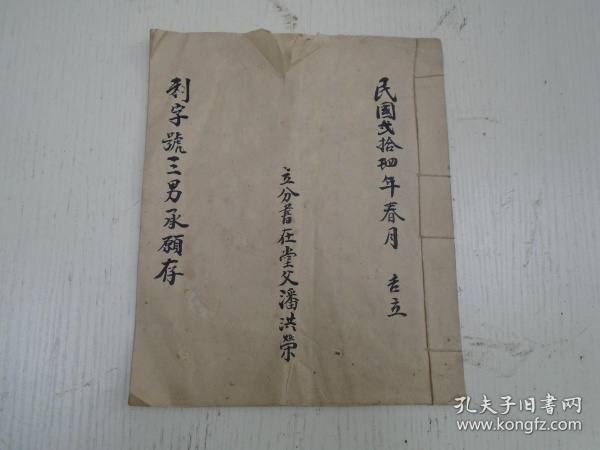 民國弍拾四年春月 吉立
立分書在堂父潘洪榮
利字號三男承願存
孔夫子旧书网
www.kongfz.com